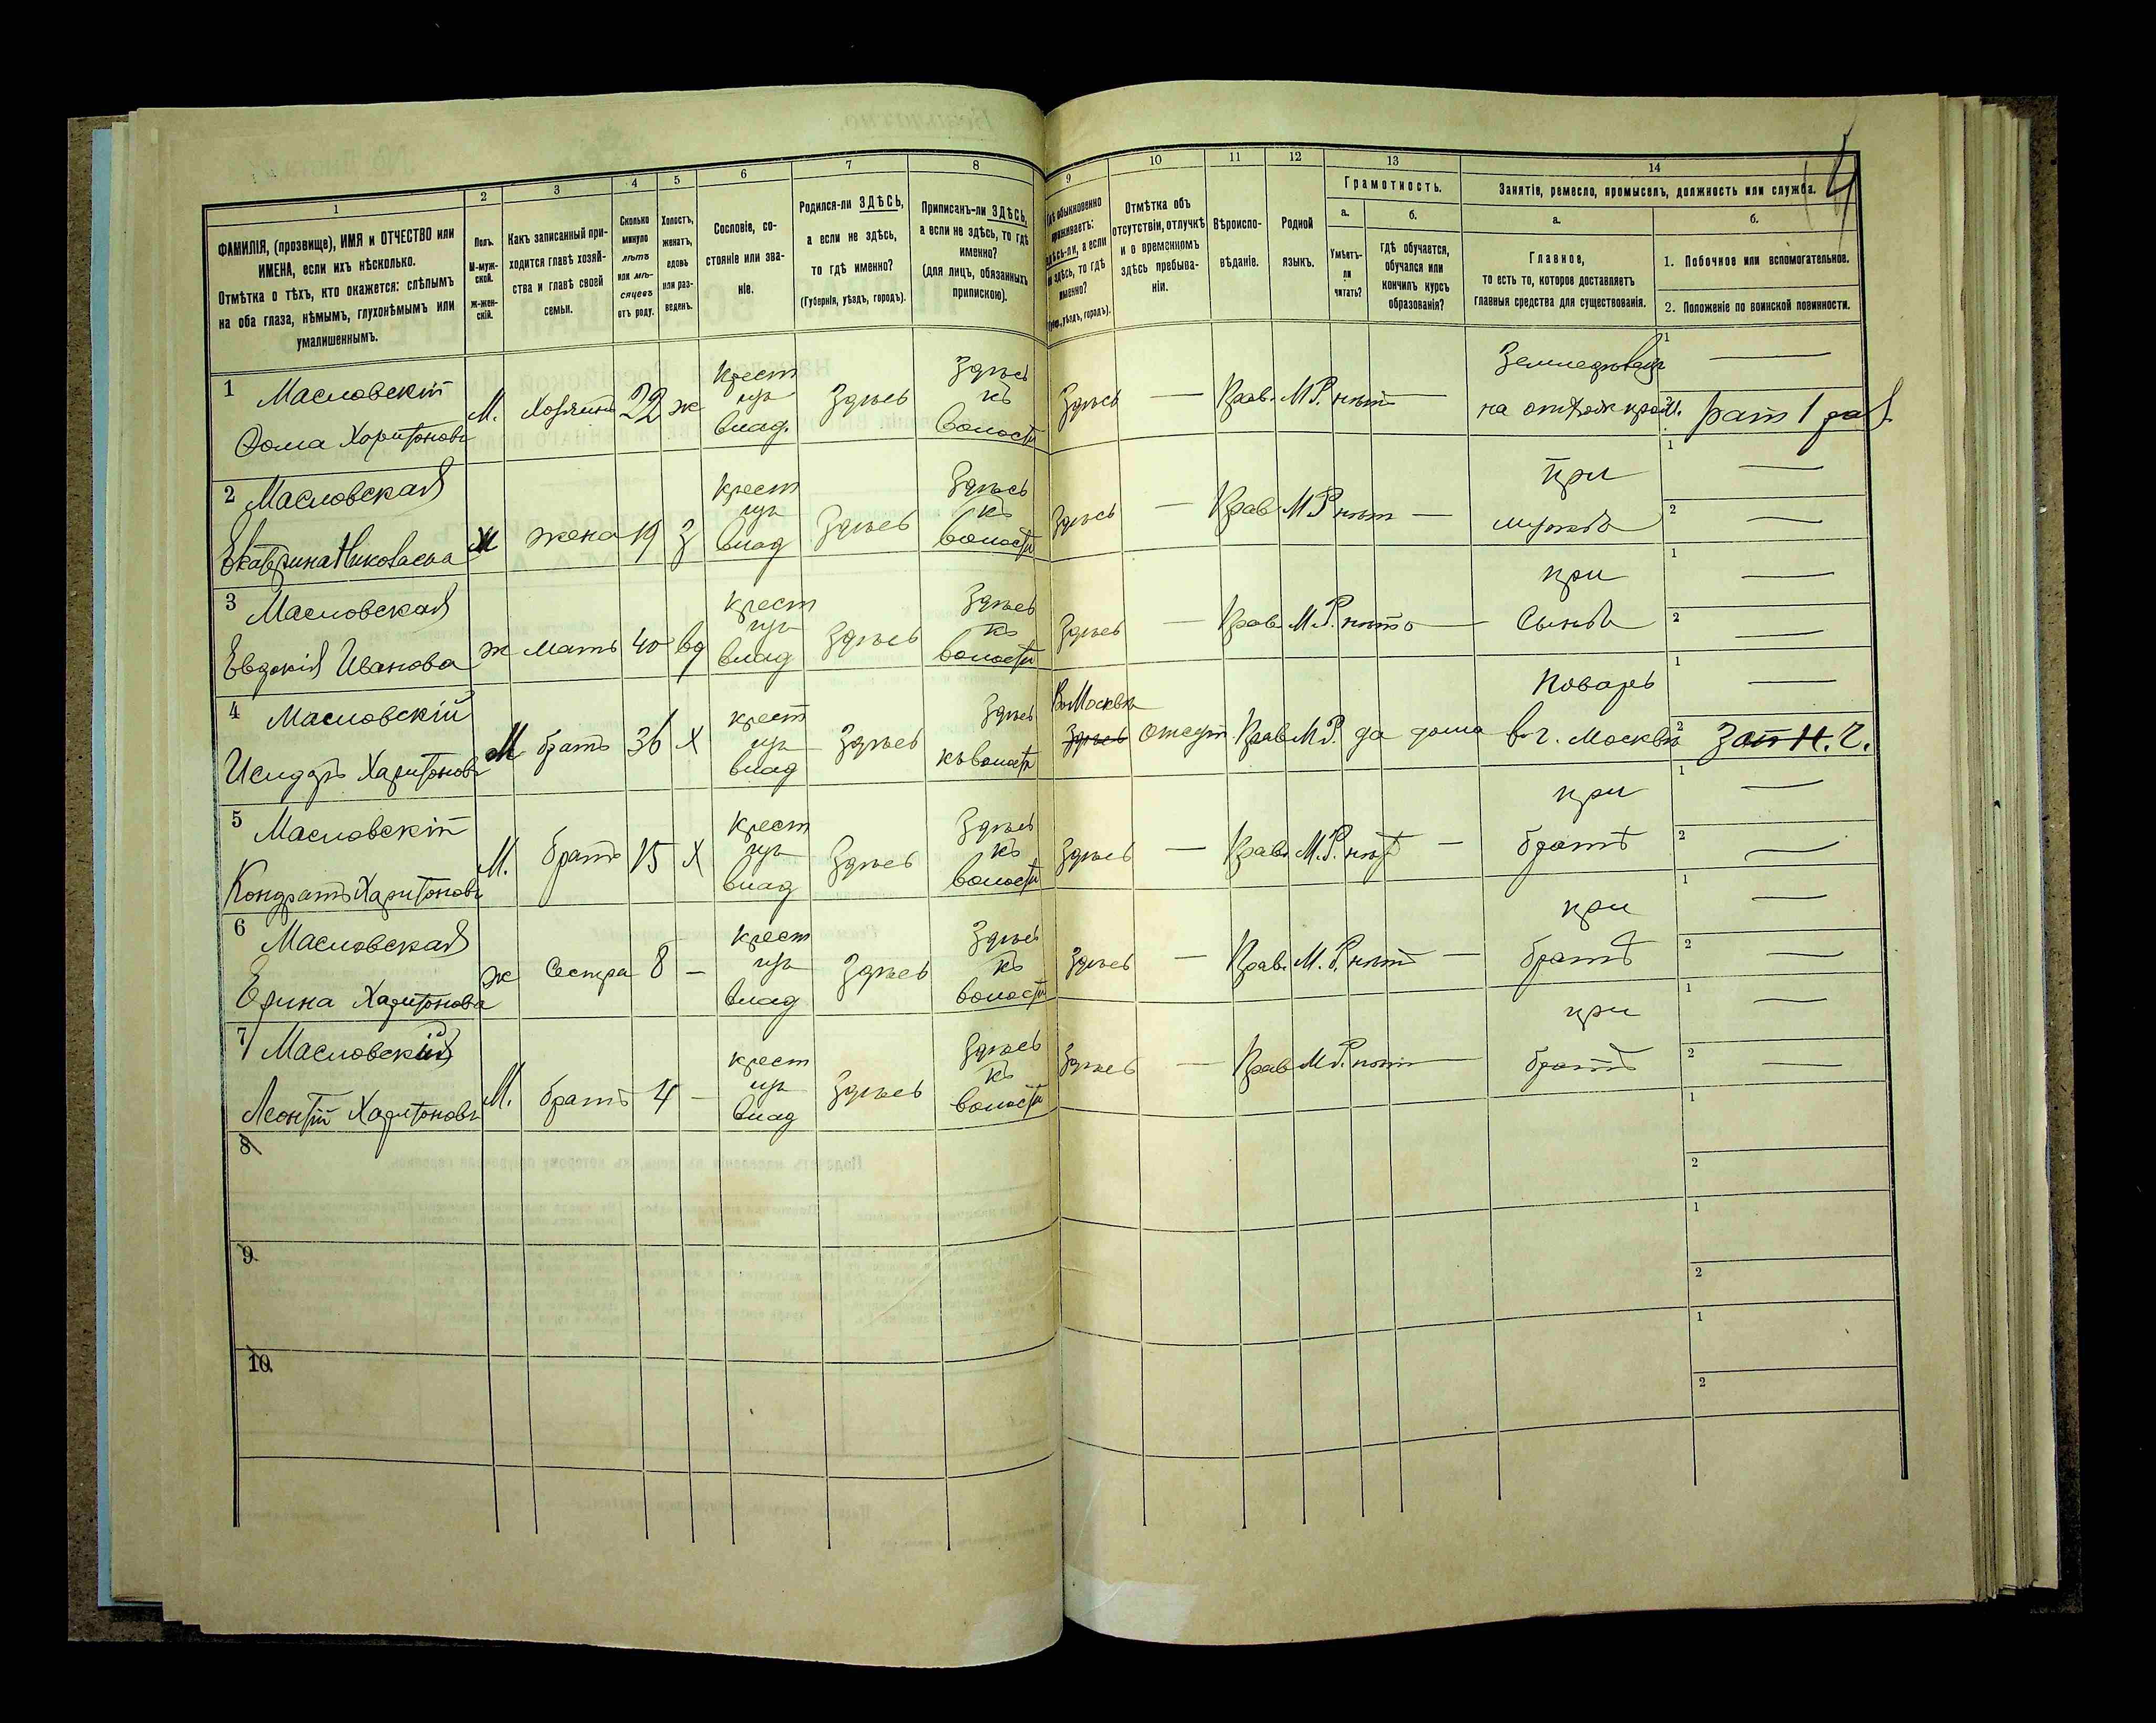 4
1
ФАМИЛІЯ, (прозвище), ИМЯ и ОТЧЕСТВО или
ИМЕНА, если ихъ нѣсколько.
Отмѣтка о тѣхъ, кто окажется: слѣпымъ
на оба глаза, нѣмымъ, глухонѣмымъ или
умалишеннымъ.
2
Полъ.
М-муж-
ской.
Ж-жен-
скій.
3
Какъ записанный при-
ходится главѣ хозяй-
ства и главѣ своей
семьи.
4
Сколько
минуло
лѣтъ
или мѣ-
сяцевъ
отъ роду.
5
Холостъ,
женатъ,
вдовъ
или раз-
веденъ.
6
Сословіе, со-
стояніе или зва-
ніе.
7
Родился-ли ЗДѢСЬ,
а если не здѣсь,
то гдѣ именно?
(Губернія, уѣздъ, городъ).
8
Приписанъ-ли ЗДѢСЬ,
а если не здѣсь, то гдѣ
именно?
(для лицъ, обязанныхъ
припискою).
9
обыкновенно
проживаетъ:
здѣсь-ли, а если
не здѣсь, то гдѣ
именно?
уѣздъ, городъ).
10
Отмѣтка объ
отсутствіи, отлучкѣ
и о временномъ
здѣсь пребыва-
ніи.
11
Вѣроиспо-
вѣданіе.
12
Родной
языкъ.
13
Грамотность.
а.
Умѣетъ-
ли
читать?
б.
гдѣ обучается,
обучался или
кончилъ курсъ
образованія?
14
Занятіе, ремесло, промыселъ, должность или служба.
а.
Главное,
то есть то, которое доставляетъ
главныя средства для существованія.
б.
1. Побочное или вспомогательное.
2. Положеніе по воинской повинности.
1 Масловскій
Фома Харитоновъ
М. Хозяинъ 22 ж
Крест
изъ
влад.
Здѣсь
Здѣсь
къ
волости
Здѣсь — Прав. М.Р. нѣтъ —
Земледѣлецъ
1 —
2 рат 1 раз
2 Масловская
Екатерина Николаева
Ж жена 19 З
Крест
изъ
влад
Здѣсь
Здѣсь
къ
волости
Здѣсь — Прав М Р нѣтъ —
при
мужѣ
1 —
2 —
3 Масловская
Евдокія Иванова
ж мать 40 вд
Крест
изъ
влад
Здѣсь
Здѣсь
къ
волости
Здѣсь — Прав. М.Р. нѣтъ —
при
Сынѣ
1 —
2 —
4 Масловскій
Исидоръ Харитоновъ
М братъ 36 Х
крест
изъ
влад
Здѣсь
Здѣсь
къ волости
Въ Москвѣ
Здѣсь
отсут. Прав М Р. да дома
Поваръ
в г. Москвѣ
1 —
2 Зап Н. Ч.
5 Масловскій
Кондратъ Харитоновъ
М. братъ 15 Х
крест
изъ
влад
Здѣсь
Здѣсь
къ
волости
Здѣсь — Прав. М.Р. нѣтъ —
при
братѣ
1 —
2 —
6 Масловская
Ерина Харитонова
ж Сестра 8 —
крест
изъ
влад
Здѣсь
Здѣсь
къ
волости
Здѣсь — Прав. М.Р. нѣтъ —
при
братѣ
1 —
2 —
7 Масловскій
Леонтій Харитоновъ
М. братъ 4 —
крест
изъ
влад
Здѣсь
Здѣсь
къ
волости
Здѣсь — Прав М.Р. нѣтъ —
при
братѣ
1 —
2 —
8
1
2
9
1
2
10
1
2